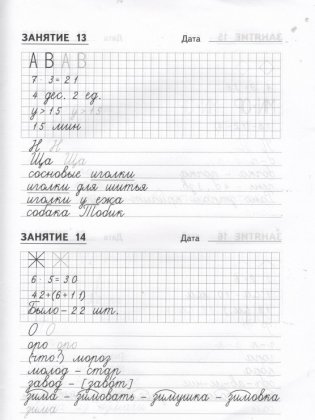 ЗАНЯТИЕ 13 Дата
А В А В
7 · 3 = 21
4 дес. 2 ед.
у > 15 у > 15
15 мин
Н Н
Ща Ща
сосновые иголки
иголки для шитья
иголки у ежа
собака Тобик
ЗАНЯТИЕ 14 Дата
Ж Ж
6 · 5 = 30
42 + (6 + 11)
Было – 22 шт.
О О
оро оро
(что?) мороз
молод – стар
завод – [завот]
зима – зимовать – зимушка – зимовка
зима